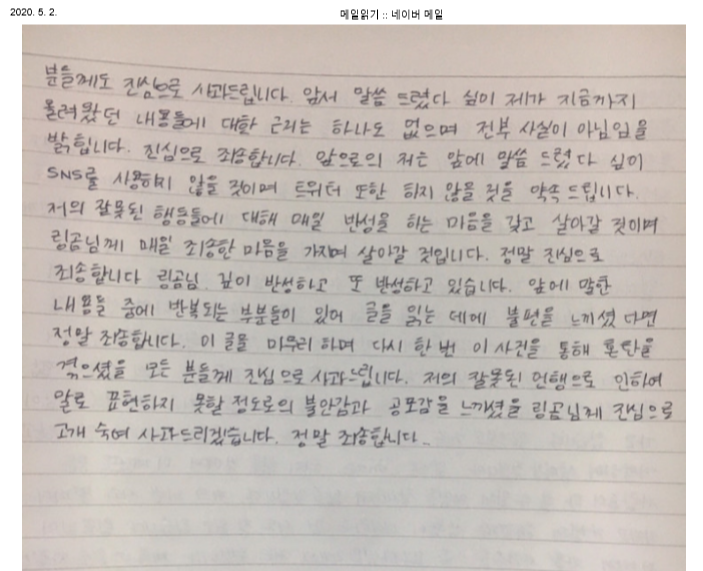 2020. 5. 2.
메일읽기 :: 네이버 메일
분들께도 진심으로 사과드립니다. 앞서 말씀 드렸다 싶이 제가 지금까지
올려왔던 내용들에 대화 근리는 하나도 없으며 전부 사실이 아님임을
밝힙니다. 진심으로 죄송합니다. 앞으로의 저는 앞에 말씀 드렸다 싶이
SNS를 사용하지 않을 것이며 트위터 또한 하지 않을 것을 약속 드립니다.
저의 잘못된 행동들에 대해 매일 반성을 하는 마음을 갖고 살아갈 것이며
링곰님께 매일 죄송한 마음을 가지며 살아갈 것입니다. 정말 진심으로
죄송합니다 링곰님. 깊이 반성하고 또 반성하고 있습니다. 앞에 말한
내용들 중에 반복되는 부분들이 있어 글을 읽는 데에 불편을 느끼셨다면
정말 죄송합니다. 이 글을 마무리 하며 다시 한 번 이 사건을 통해 혼란을
겪으셨을 모든 분들께 진심으로 사과드립니다. 저의 잘못된 언행으로 인하여
말로 표현하지 못할 정도로의 불안감과 공포감을 느끼셨을 링곰님께 진심으로
고개 숙여 사과드리겠습니다. 정말 죄송합니다..